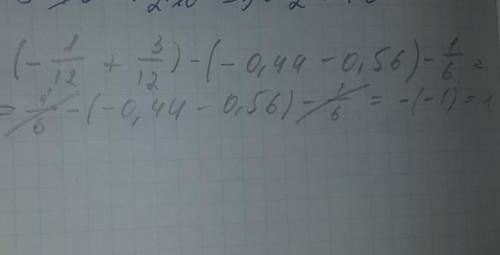 (- 1/12 + 3/12) - (- 0,44 - 0,56) - 1/6 =
= 1/6 - (- 0,44 - 0,56) - 1/6 = - (-1) = 1